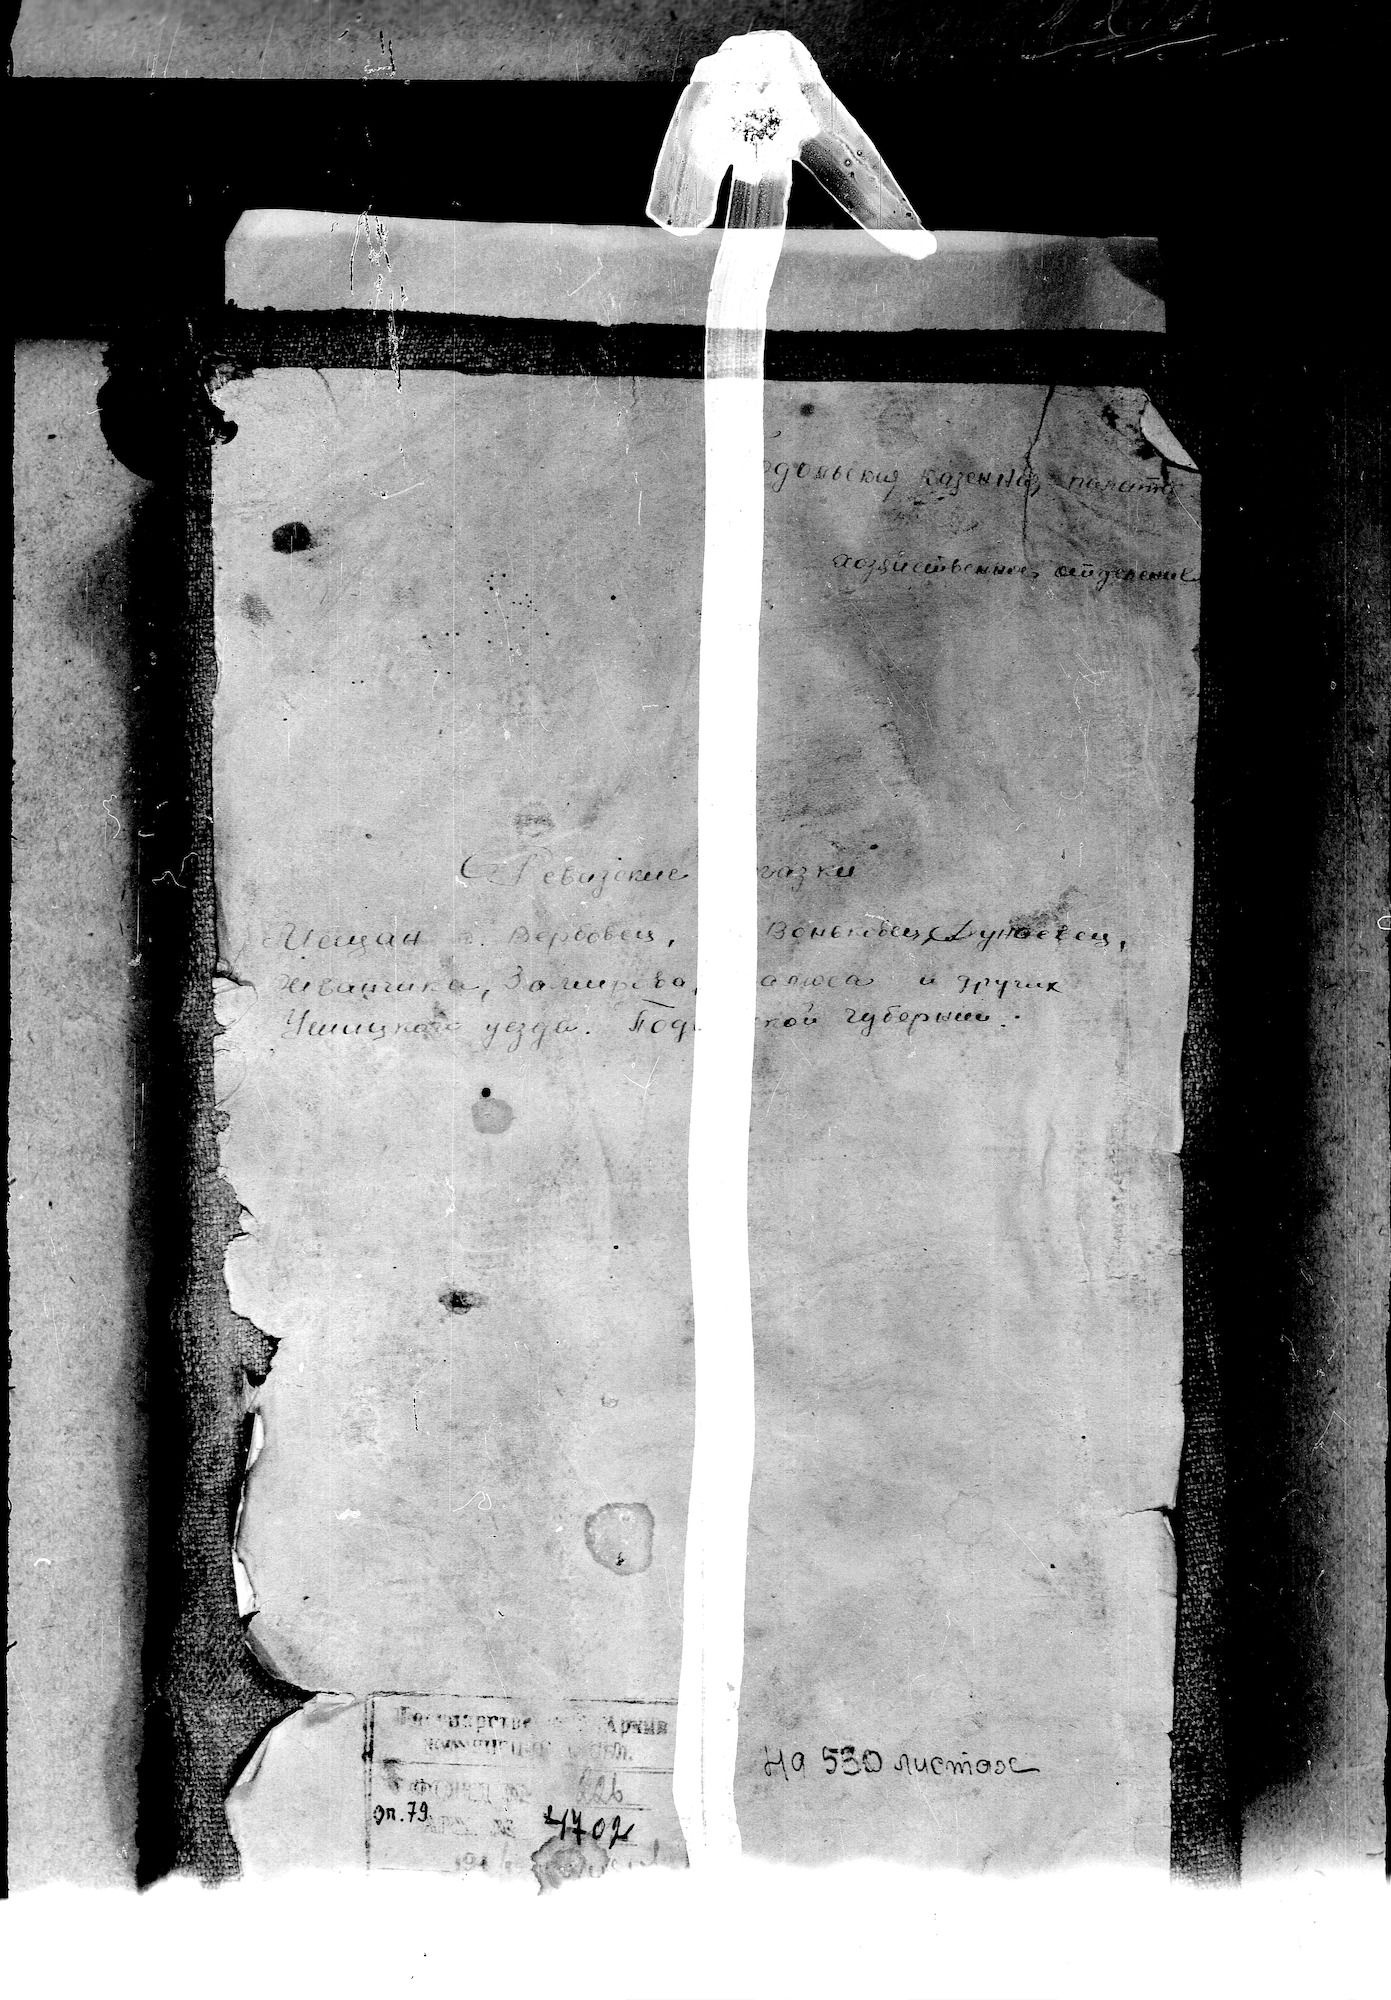 одольская казенная палата
хозяйственное отделение
Ревизские казки
Мещан г. Вербовец, Воньковец, Дунаевец,
Жванчика, Замирова, алюса и других
Ушицкого уезда. Под ской губернии.
Государстве Архив
Фонд № 226
оп. 79
4702
На 530 листах